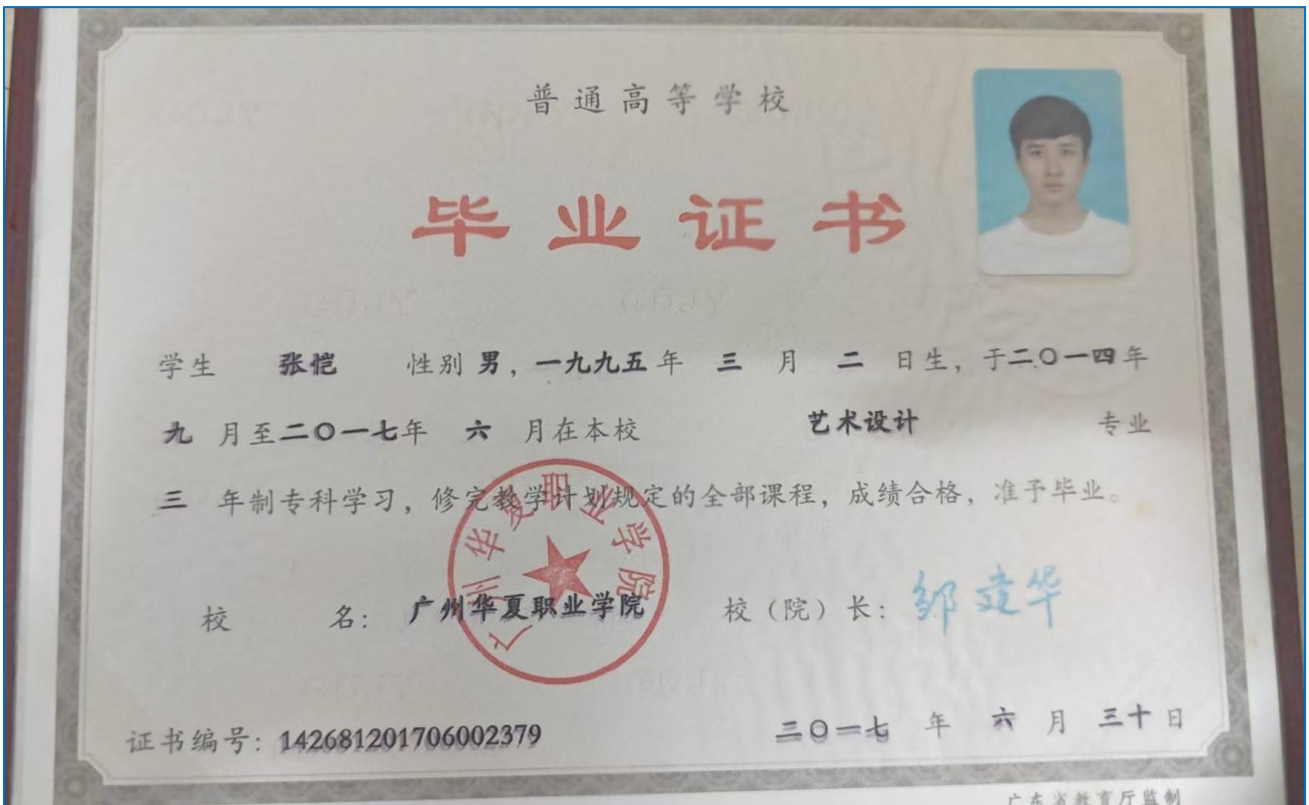 普通高等学校
毕业证书
学生 张恺 性别 男，一九九五年 三 月 二 日生，于二〇一四年
九 月至二〇一七年 六 月在本校 艺术设计 专业
三 年制专科学习，修完教学计划规定的全部课程，成绩合格，准予毕业。
广州华夏职业学院
校 名：广州华夏职业学院 校（院）长：邹建华
证书编号：142681201706002379 二〇一七 年 六 月 三十 日
广东省教育厅监制